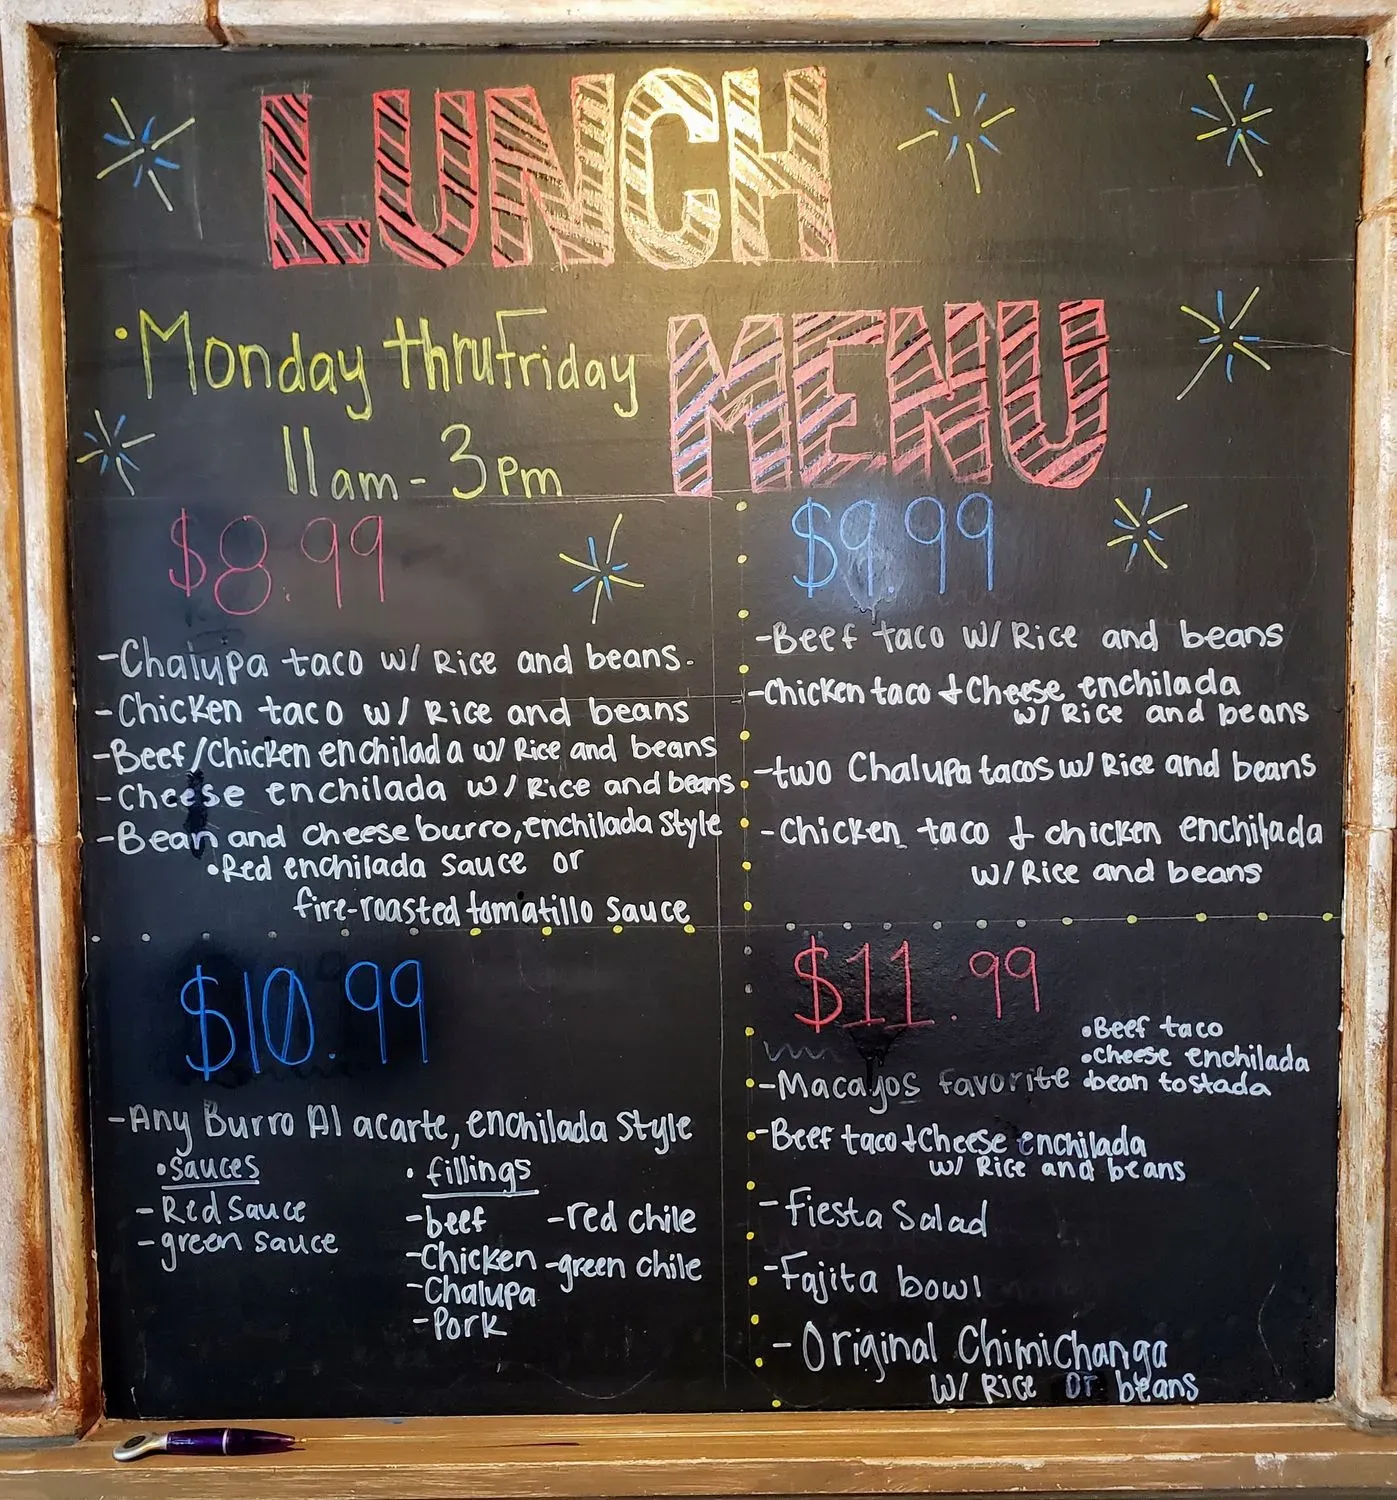 LUNCH
MENU
•Monday thru Friday
11am - 3pm
$8.99
-Chalupa taco w/ Rice and beans.
-Chicken taco w/ Rice and beans
-Beef/Chicken enchilada w/ Rice and beans
-Cheese enchilada w/ Rice and beans
-Bean and cheese burro, enchilada style
•Red enchilada sauce or
fire-roasted tomatillo sauce
$9.99
-Beef taco w/ Rice and beans
-Chicken taco & Cheese enchilada
w/ Rice and beans
-two Chalupa tacos w/ Rice and beans
-Chicken taco & chicken enchilada
w/ Rice and beans
$10.99
-Any Burro Al acarte, enchilada style
•sauces
-Red sauce
-green sauce
•fillings
-beef
-Chicken
-Chalupa
-Pork
-red chile
-green chile
$11.99
-Macayos favorite
•Beef taco
•cheese enchilada
•bean tostada
-Beef taco & Cheese enchilada
w/ Rice and beans
-Fiesta Salad
-Fajita bowl
-Original Chimichanga
w/ Rice or beans